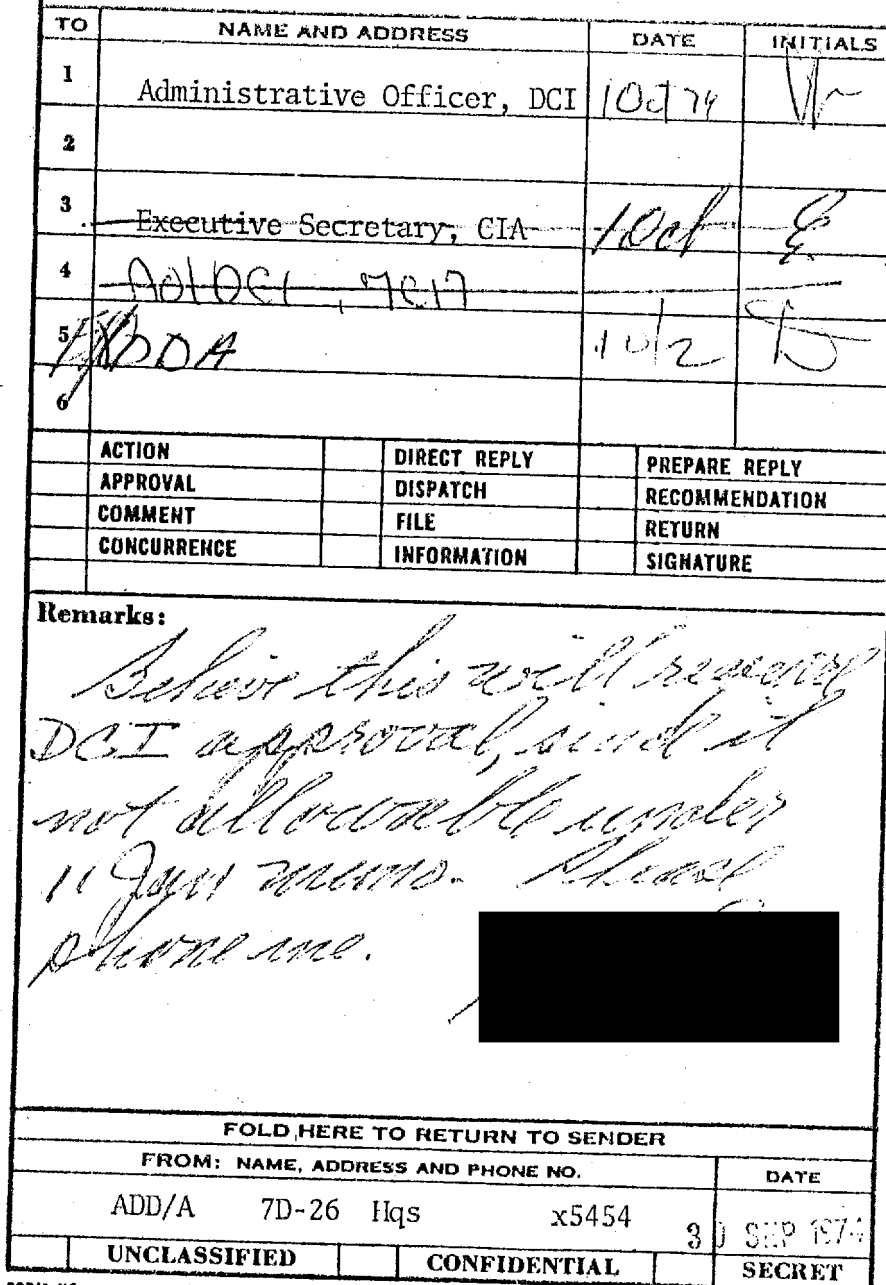 TO NAME AND ADDRESS DATE INITIALS
1 Administrative Officer, DCI 1 Oct 74
2
3 Executive Secretary, CIA 1 Oct
4 AO/DCI, 7E17
5 DDA 10/2
6
ACTION DIRECT REPLY PREPARE REPLY
APPROVAL DISPATCH RECOMMENDATION
COMMENT FILE RETURN
CONCURRENCE INFORMATION SIGNATURE
Remarks:
Believe this will require
DCI approval, since it
not allowable under
11 Jan memo. Please
phone me.
FOLD HERE TO RETURN TO SENDER
FROM: NAME, ADDRESS AND PHONE NO. DATE
ADD/A 7D-26 Hqs x5454 30 SEP 1974
UNCLASSIFIED CONFIDENTIAL SECRET